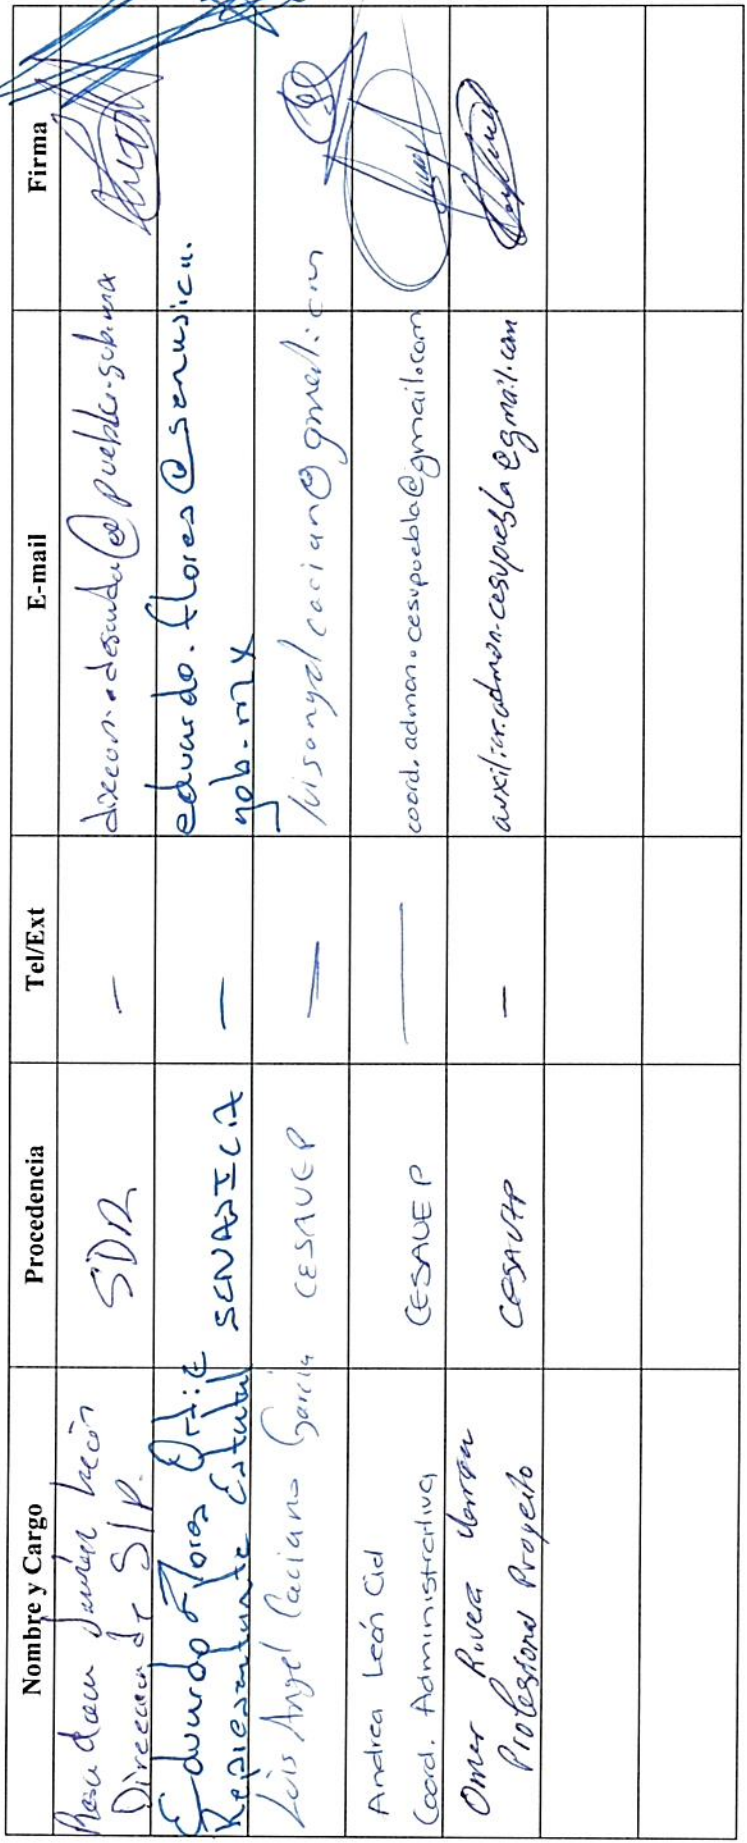 Nombre y Cargo Procedencia Tel/Ext E-mail Firma
Dirección de S/P. SDR —
Eduardo Flores Ortiz
Representante Estatal SENASICA — eduardo.flores@senasica.
gob.mx
Luis Angel Caciano Garcia CESAVEP — luisangelcacian@gmail.com
Andrea León Cid
Coord. Administrativa CESAVEP — coord.admon.cesvpuebla@gmail.com
Omar Rivera
Profesional Proyecto CESAVEP — auxiliar.admon.cesvpuebla@gmail.com